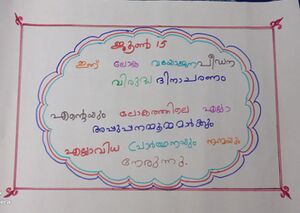 ജൂൺ 15
ഇന്ന് ലോക വയോജന പീഡന
വിരുദ്ധ ദിനാചരണം
എന്റെയും ലോകത്തിലെ എല്ലാ
അപ്പൂപ്പനമ്മൂമ്മമാർക്കും
എല്ലാവിധ പ്രാർത്ഥനയും നന്മയും
നേരുന്നു.